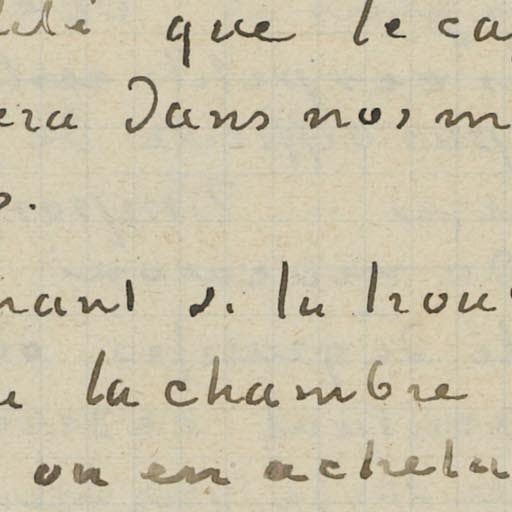 que le ca
era dans nos m
s.
nant si tu trou
la chambre
on en acheta